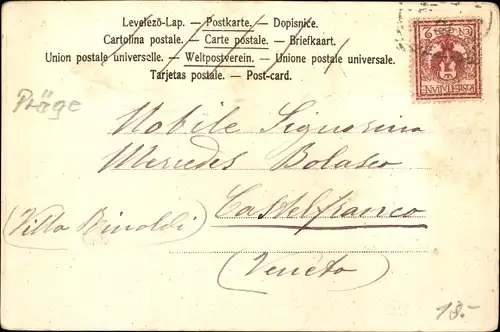 Levelező-Lap. — Postkarte. — Dopisnice.
Cartolina postale. — Carte postale. — Briefkaart.
Union postale universelle. — Weltpostverein. — Unione postale universale.
Tarjetas postale. — Post-card.
Präge
Nobile Signorina
Mercedes Bolasco
Castelfranco
(Villa Rinaldi)
(Veneto)
18.-